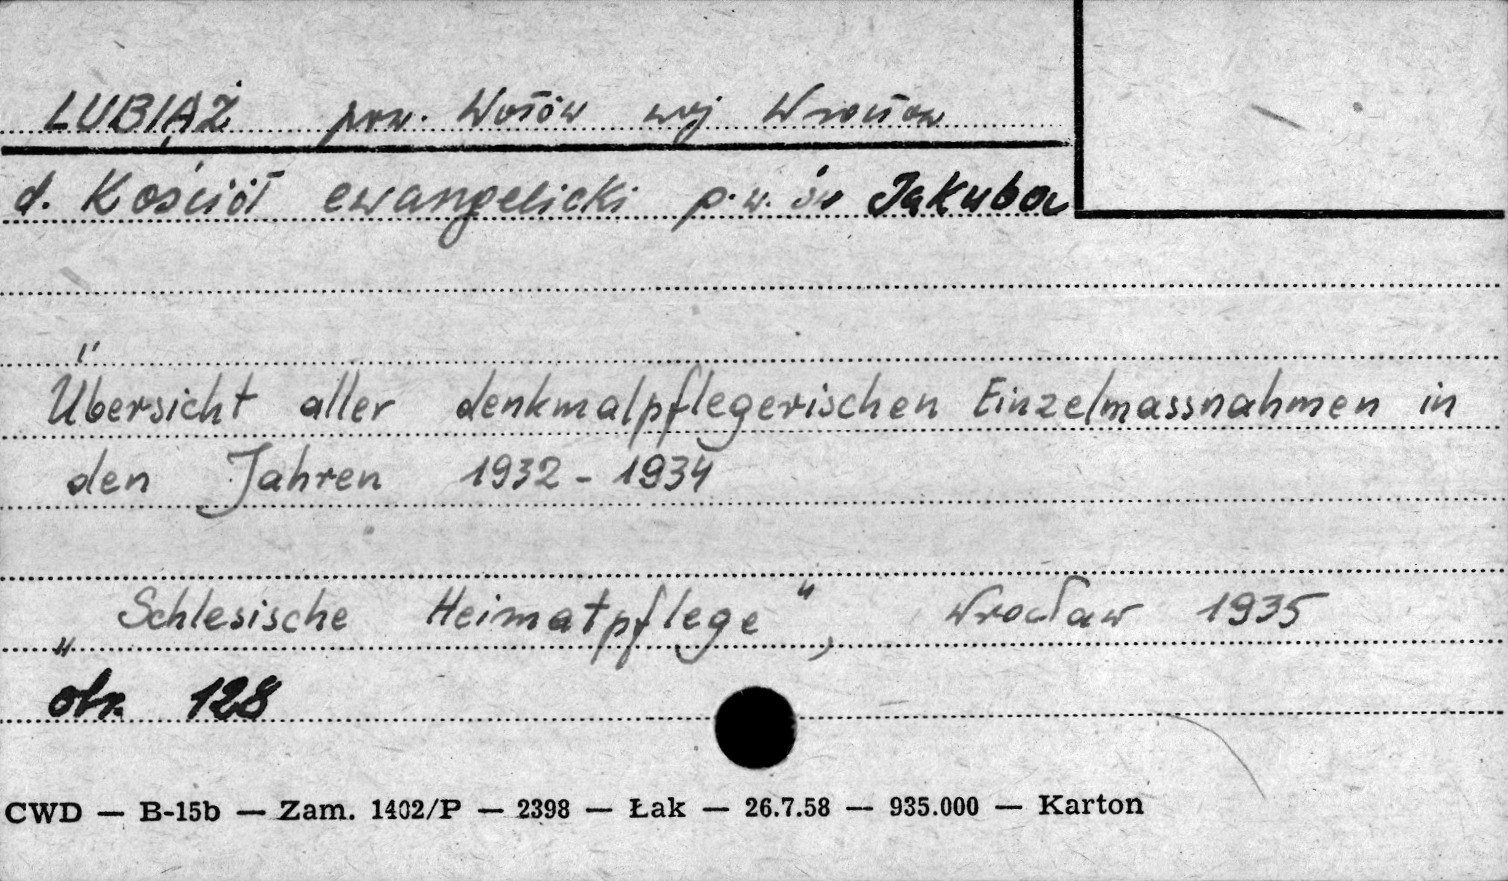 LUBIĄŻ pow. Wołów woj Wrocław
d. Kościół ewangelicki p.w. św Jakuba
Übersicht aller denkmalpflegerischen Einzelmassnahmen in
den Jahren 1932 - 1934
„Schlesische Heimatpflege", Wrocław 1935
str. 128
CWD — B-15b — Zam. 1402/P — 2398 — Łak — 26.7.58 — 935.000 — Karton